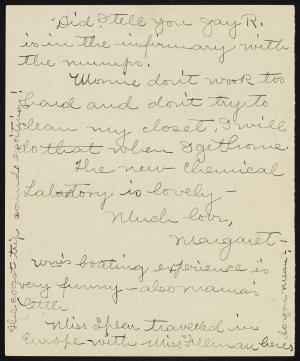 Did I tell you Jay R.
is in the infirmary with
the mumps.
Momie don't work too
hard and don't try to
clean my closet, I will
do that when I get home.
The new Chemical
Laboratory is lovely -
Much love,
Margaret -
boating experience is
very funny - also mama's
letter.
Miss Spear travelled in
Europe with Miss
do you mean?
The coast trip sounds exciting!